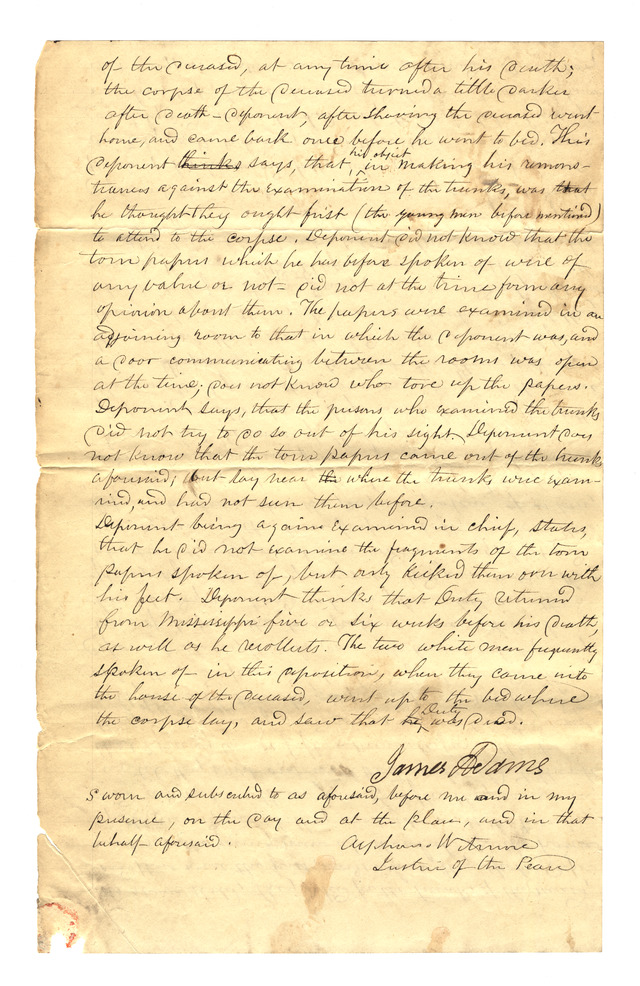 of the deceased, at any time after his death;
the corpse of the deceased turned a little darker
after death - deponent, after shaving the deceased went
home, and came back once before he went to bed. This
deponent thinks says, that, his object in making his remons-
trances against the examination of the trunks, was that
he thought they ought frist (the young men before mentioned)
to attend to the corpse. Deponent did not know that the
torn papers which he has before spoken of were of
any value or not - did not at the time form any
opinion about them. The papers were examined in an
adjoining room to that in which the deponent was, and
a door communicating between the rooms was open
at the time; does not know who tore up the papers.
Deponent says, that the persons who examined the trunks
did not try to do so out of his sight. Deponent does
not know that the torn papers came out of the trunk
aforesaid; but lay near the where the trunks were exam-
ined, and had not seen them before.
Deponent being againe examined in chief, states,
that he did not examine the fragments of the torn
papers spoken of, but only kicked them over with
his feet. Deponent thinks that Duty returned
from Mississippi five or six weeks before his death,
as well as he recollects. The two white men frequently
spoken of in this deposition, when they came into
the house of the deceased, went up to the bed where
the corpse lay, and saw that he Duty was dead.
James Adams
Sworn and subscribed to as aforesaid, before me and in my
presence, on the day and at the place, and in that
behalf aforesaid. Alphonso Wetmore
Justice of the Peace